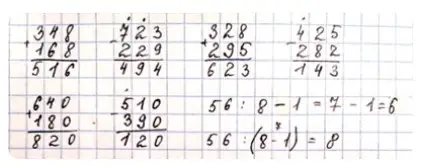 348 + 168 = 516
723 - 229 = 494
328 + 295 = 623
425 - 282 = 143
640 + 180 = 820
510 - 390 = 120
56 : 8 - 1 = 7 - 1 = 6
7
56 : (8 - 1) = 8